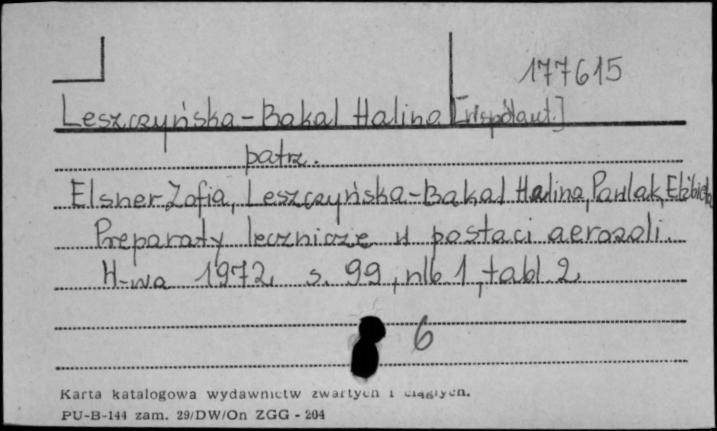 177615
Leszczyńska-Bakal Halina [współaut.]
patrz.
Elsner Zofia, Leszczyńska-Bakal Halina, Pawlak, Elżbieta
Preparaty lecznicze w postaci aerozoli.
W-wa 1972 s. 99, nlb 1, tabl 2
6
Karta katalogowa wydawnictw zwartych i ciągłych.
PU-B-144 zam. 29/DW/On ZGG - 204